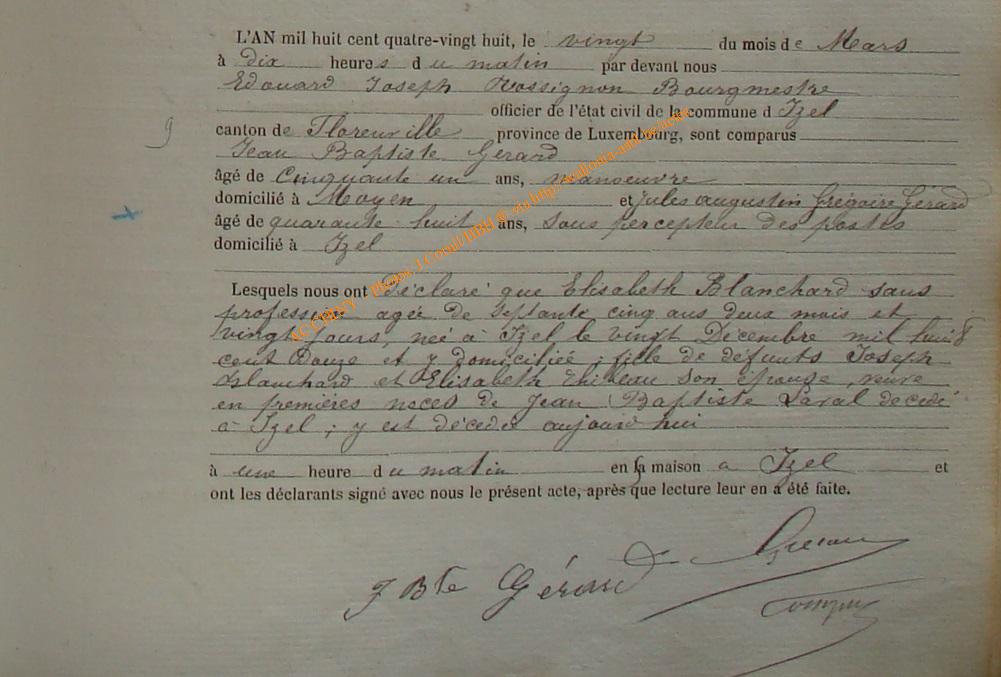 L'AN mil huit cent quatre-vingt huit, le vingt du mois de Mars
à dix heures du matin par devant nous
Edouard Joseph Rossignon Bourgmestre
officier de l'état civil de la commune d Izel
9 canton de Florenville province de Luxembourg, sont comparus
Jean Baptiste Gérard
âgé de Cinquante un ans, manoeuvre
domicilié à Moyen et Jules augustin Grégoire Gérard
âgé de quarante huit ans, sous percepteur des postes
domicilié à Izel
Lesquels nous ont Déclaré que Elisabeth Blanchard sans
profession agée de Septante cinq ans deux mois et
vingt jours, née à Izel le vingt Décembre mil huit
cent Douze et y domiciliée ; fille de défunts Joseph
Blanchard et Elisabeth Thibeau son épouse, veuve
en premières noces de Jean Baptiste Laval décédé
à Izel ; y est décédée aujourd'hui
à une heure du matin en sa maison a Izel et
ont les déclarants signé avec nous le présent acte, après que lecture leur en a été faite.
J Bte Gérard